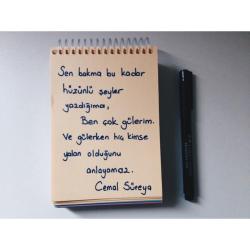 Sen bakma bu kadar
hüzünlü şeyler
yazdığıma,
Ben çok gülerim.
Ve gülerken hiç kimse
yalan olduğunu
anlayamaz.
Cemal Süreya